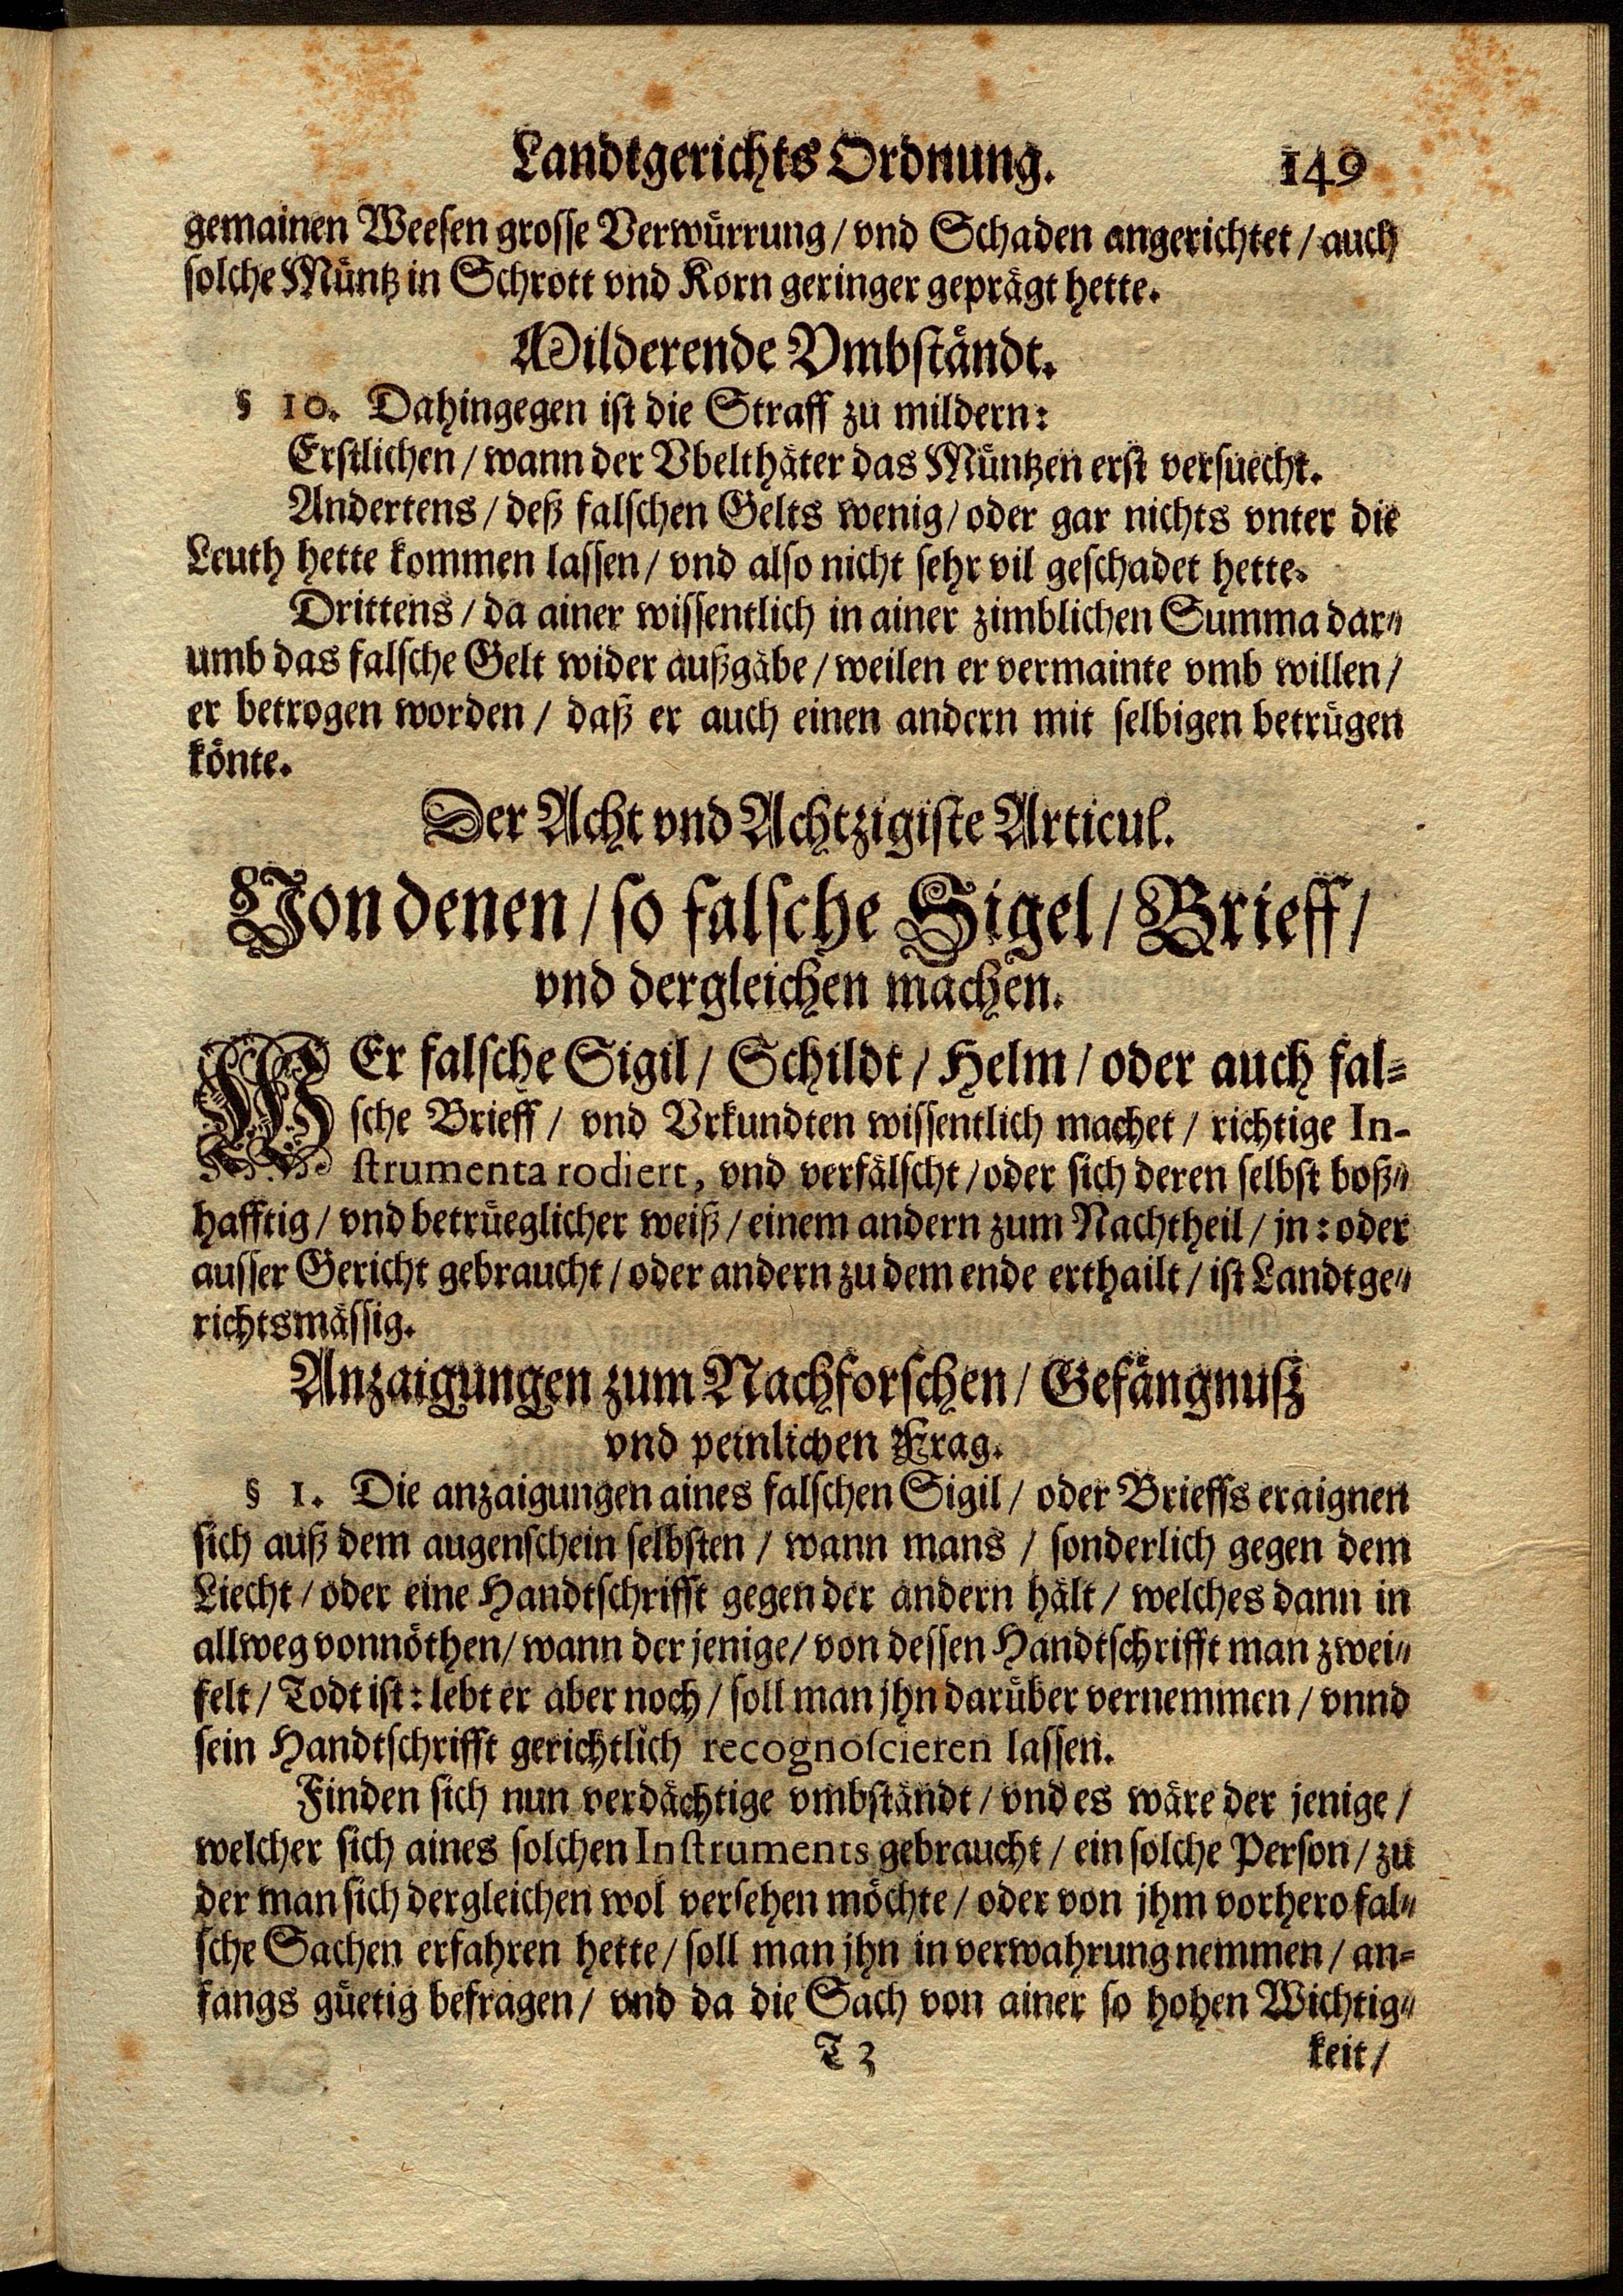 Landtgerichts Ordnung. 149
gemainen Weesen grosse Verwürrung / vnd Schaden angerichtet / auch
solche Müntz in Schrott vnd Korn geringer geprägt hette.
Milderende Vmbständt.
§ 10. Dahingegen ist die Straff zu mildern:
Erstlichen / wann der Vbelthäter das Müntzen erst versuecht.
Andertens / deß falschen Gelts wenig / oder gar nichts vnter die
Leuth hette kommen lassen / vnd also nicht sehr vil geschadet hette.
Drittens / da ainer wissentlich in ainer zimblichen Summa dar-
umb das falsche Gelt wider außgäbe / weilen er vermainte vmb willen /
er betrogen worden / daß er auch einen andern mit selbigen betrügen
könte.
Der Acht vnd Achtzigiste Articul.
Von denen / so falsche Sigel / Brieff /
vnd dergleichen machen.
WEr falsche Sigil / Schildt / Helm / oder auch fal-
sche Brieff / vnd Vrkundten wissentlich machet / richtige In-
strumenta rodiert, vnd verfälscht / oder sich deren selbst boß-
hafftig / vnd betrüeglicher weiß / einem andern zum Nachtheil / jn: oder
ausser Gericht gebraucht / oder andern zu dem ende erthailt / ist Landtge-
richtsmässig.
Anzaigungen zum Nachforschen / Gefängnuß
vnd peinlichen Frag.
§ 1. Die anzaigungen aines falschen Sigil / oder Brieffs eraignen
sich auß dem augenschein selbsten / wann mans / sonderlich gegen dem
Liecht / oder eine Handtschrifft gegen der andern hält / welches dann in
allweg vonnöthen / wann der jenige / von dessen Handtschrifft man zwei-
felt / Todt ist: lebt er aber noch / soll man jhn darüber vernemmen / vnnd
sein Handtschrifft gerichtlich recognoscieren lassen.
Finden sich nun verdächtige vmbständt / vnd es wäre der jenige /
welcher sich aines solchen Instruments gebraucht / ein solche Person / zu
der man sich dergleichen wol versehen möchte / oder von jhm vorhero fal-
sche Sachen erfahren hette / soll man jhn in verwahrung nemmen / an-
fangs güetig befragen / vnd da die Sach von ainer so hohen Wichtig-
T 3 keit /